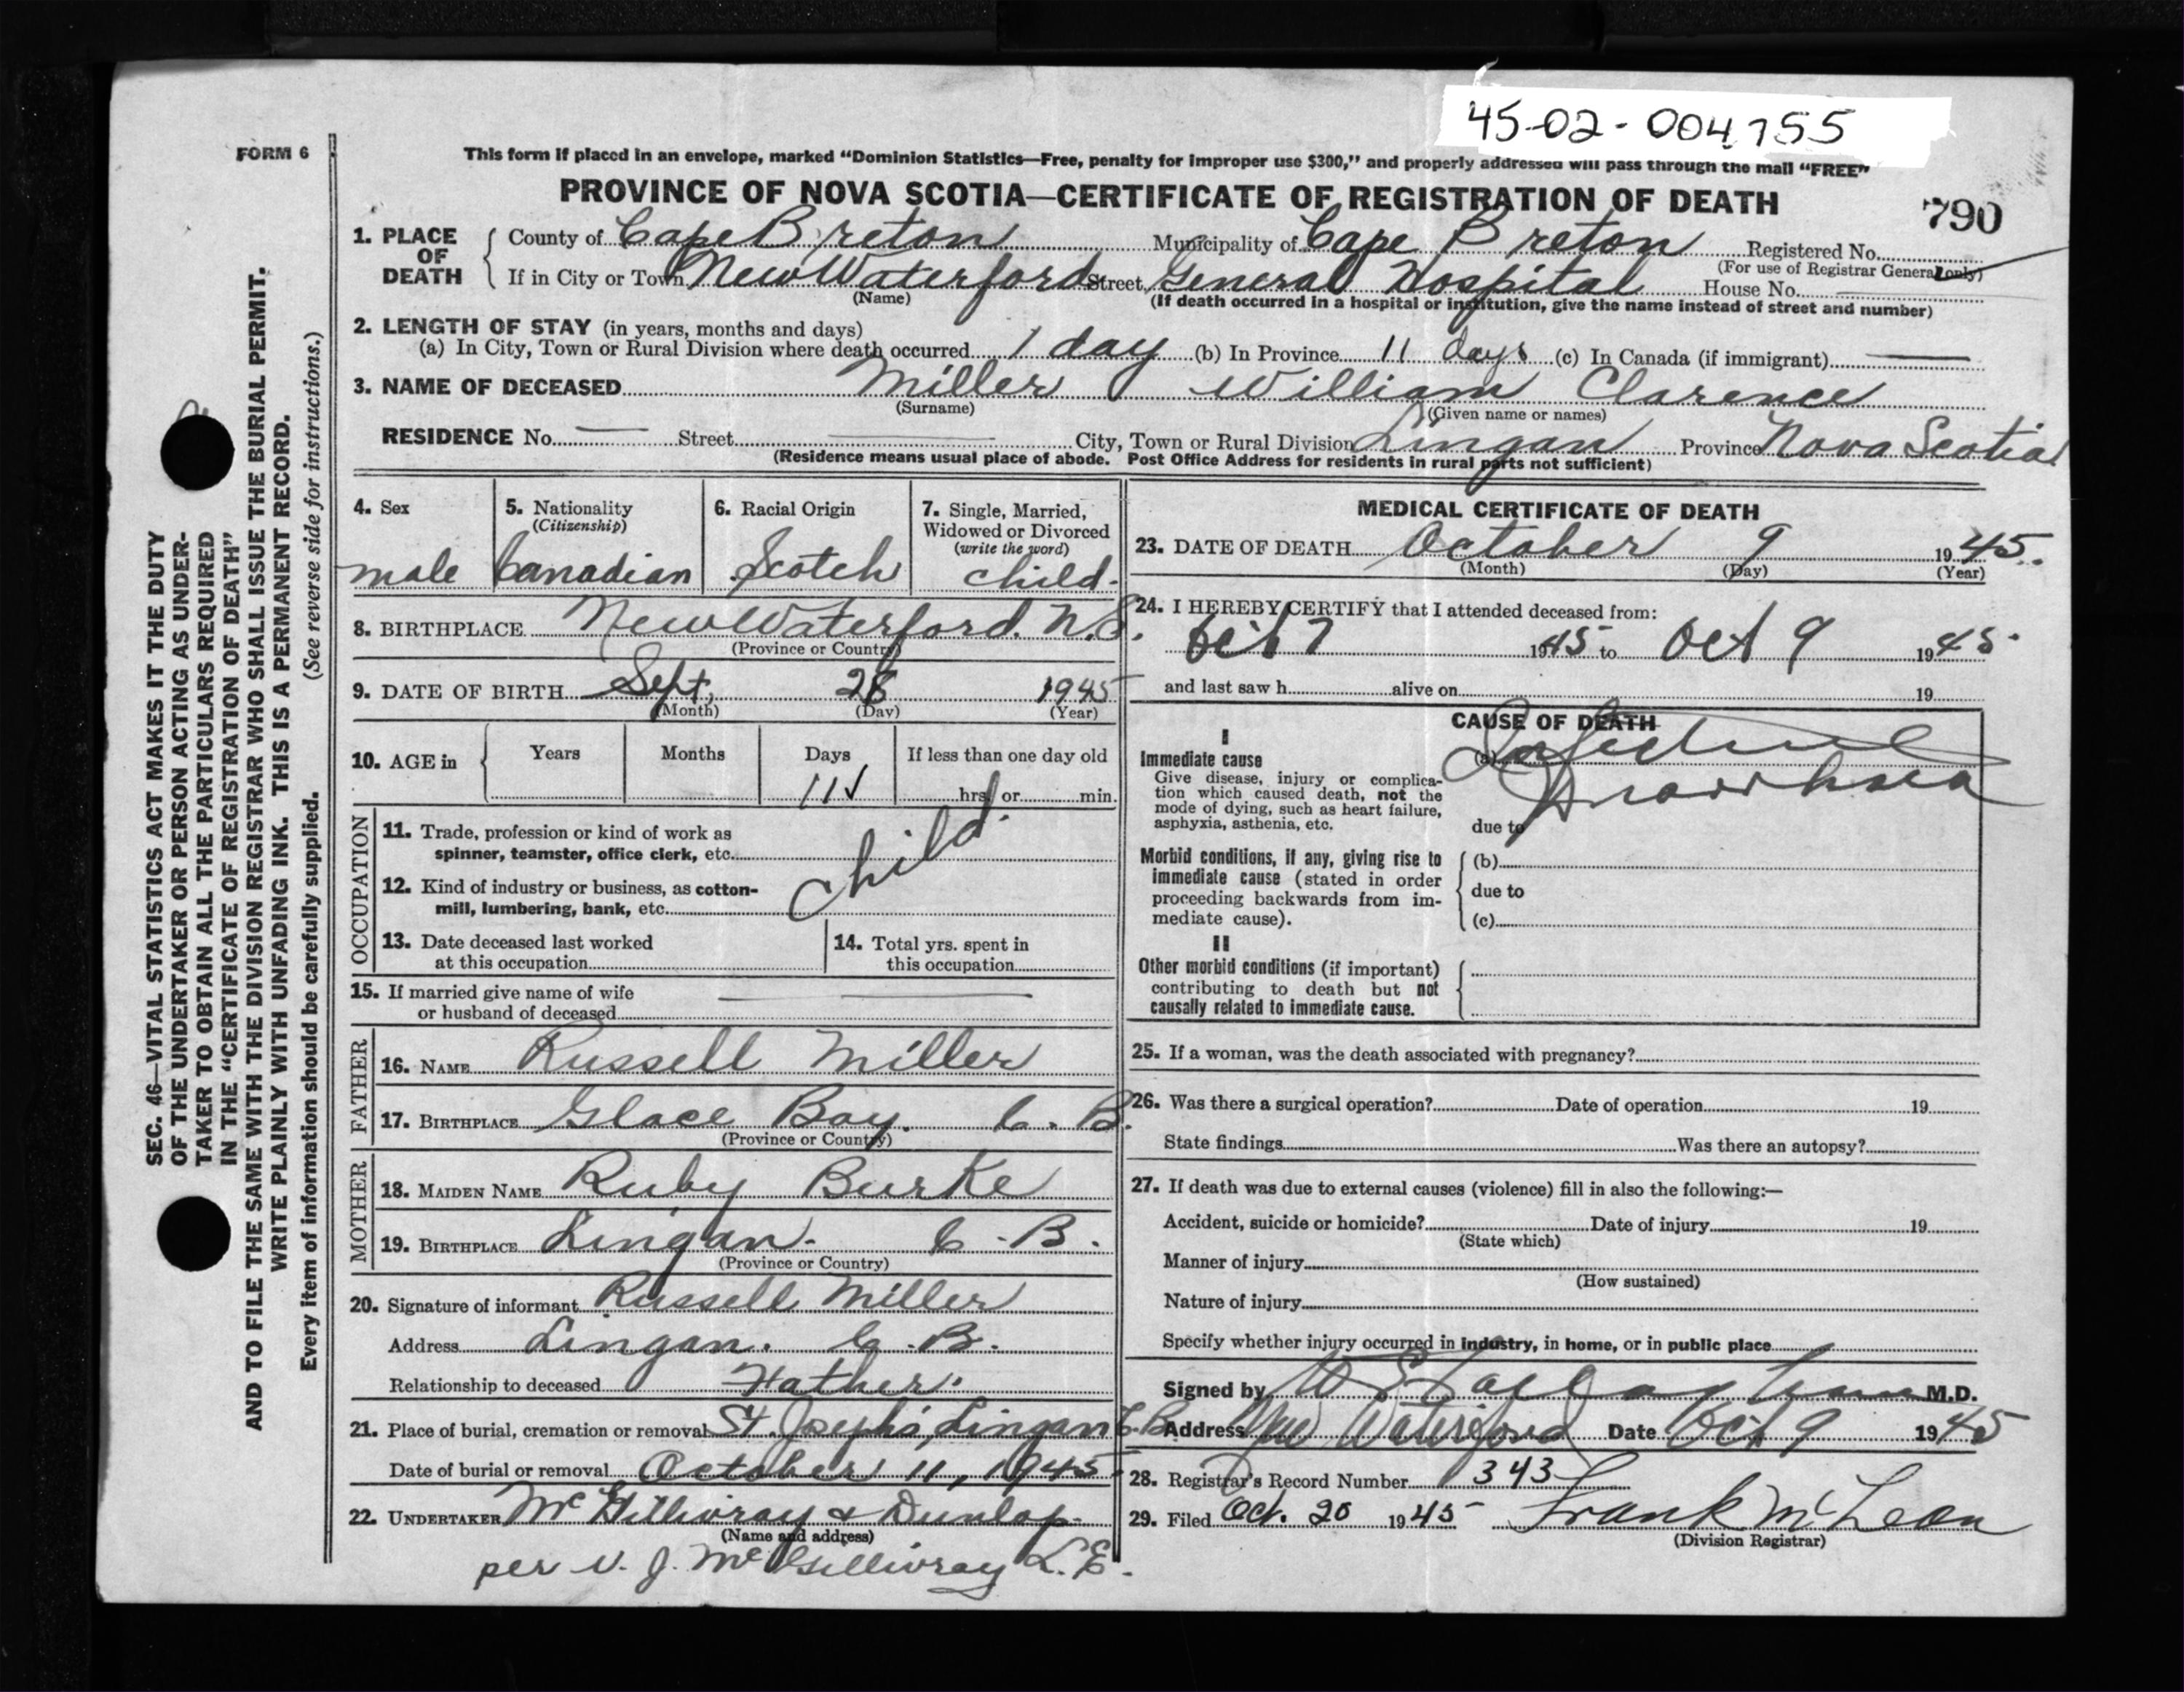 45-02-004755
FORM 6
This form if placed in an envelope, marked “Dominion Statistics—Free, penalty for improper use $300,” and properly addressed will pass through the mail “FREE”
PROVINCE OF NOVA SCOTIA—CERTIFICATE OF REGISTRATION OF DEATH
790
1. PLACE OF DEATH
County of Cape Breton Municipality of Cape Breton Registered No.
(For use of Registrar General only)
If in City or Town New Waterford Street General Hospital House No. —
(Name) (If death occurred in a hospital or institution, give the name instead of street and number)
2. LENGTH OF STAY (in years, months and days)
(a) In City, Town or Rural Division where death occurred 1 day (b) In Province 11 days (c) In Canada (if immigrant) —
3. NAME OF DECEASED Miller William Clarence
(Surname) (Given name or names)
RESIDENCE No. — Street — City, Town or Rural Division Lingan Province Nova Scotia
(Residence means usual place of abode. Post Office Address for residents in rural parts not sufficient)
4. Sex
male
5. Nationality
(Citizenship)
Canadian
6. Racial Origin
Scotch
7. Single, Married,
Widowed or Divorced
(write the word)
child.
8. BIRTHPLACE New Waterford. N.S.
(Province or Country)
9. DATE OF BIRTH Sept. 28 1945
(Month) (Day) (Year)
10. AGE in
Years Months Days If less than one day old
11 ✓ hrs. or min.
OCCUPATION
11. Trade, profession or kind of work as
spinner, teamster, office clerk, etc.
child.
12. Kind of industry or business, as cotton-
mill, lumbering, bank, etc.
13. Date deceased last worked
at this occupation
14. Total yrs. spent in
this occupation
15. If married give name of wife
or husband of deceased — —
FATHER
16. NAME Russell Miller
17. BIRTHPLACE Glace Bay. C. B.
(Province or Country)
MOTHER
18. MAIDEN NAME Ruby Burke
19. BIRTHPLACE Lingan. C. B.
(Province or Country)
20. Signature of informant Russell Miller
Address Lingan. C. B.
Relationship to deceased Father.
21. Place of burial, cremation or removal St. Joseph's, Lingan C.B.
Date of burial or removal October 11, 1945.
22. UNDERTAKER McGillivray & Dunlop.
(Name and address)
per V. J. McGillivray L.E.
MEDICAL CERTIFICATE OF DEATH
23. DATE OF DEATH October 9 1945.
(Month) (Day) (Year)
24. I HEREBY CERTIFY that I attended deceased from:
Oct 7 1945 to Oct 9 1945
and last saw h alive on 19
CAUSE OF DEATH
I
Immediate cause
Give disease, injury or complica-
tion which caused death, not the
mode of dying, such as heart failure,
asphyxia, asthenia, etc.
(a) Infectious
Diarrhoea
due to
Morbid conditions, if any, giving rise to
immediate cause (stated in order
proceeding backwards from im-
mediate cause).
(b)
due to
(c)
II
Other morbid conditions (if important)
contributing to death but not
causally related to immediate cause.
25. If a woman, was the death associated with pregnancy?
26. Was there a surgical operation? Date of operation 19
State findings Was there an autopsy?
27. If death was due to external causes (violence) fill in also the following:—
Accident, suicide or homicide? Date of injury 19
(State which)
Manner of injury
(How sustained)
Nature of injury
Specify whether injury occurred in industry, in home, or in public place
Signed by M.D.
Address New Waterford Date Oct 9 1945
28. Registrar's Record Number 343
29. Filed Oct. 20 1945 Frank McLean
(Division Registrar)
SEC. 46—VITAL STATISTICS ACT MAKES IT THE DUTY
OF THE UNDERTAKER OR PERSON ACTING AS UNDER-
TAKER TO OBTAIN ALL THE PARTICULARS REQUIRED
IN THE “CERTIFICATE OF REGISTRATION OF DEATH”
AND TO FILE THE SAME WITH THE DIVISION REGISTRAR WHO SHALL ISSUE THE BURIAL PERMIT.
WRITE PLAINLY WITH UNFADING INK. THIS IS A PERMANENT RECORD.
Every item of information should be carefully supplied. (See reverse side for instructions.)